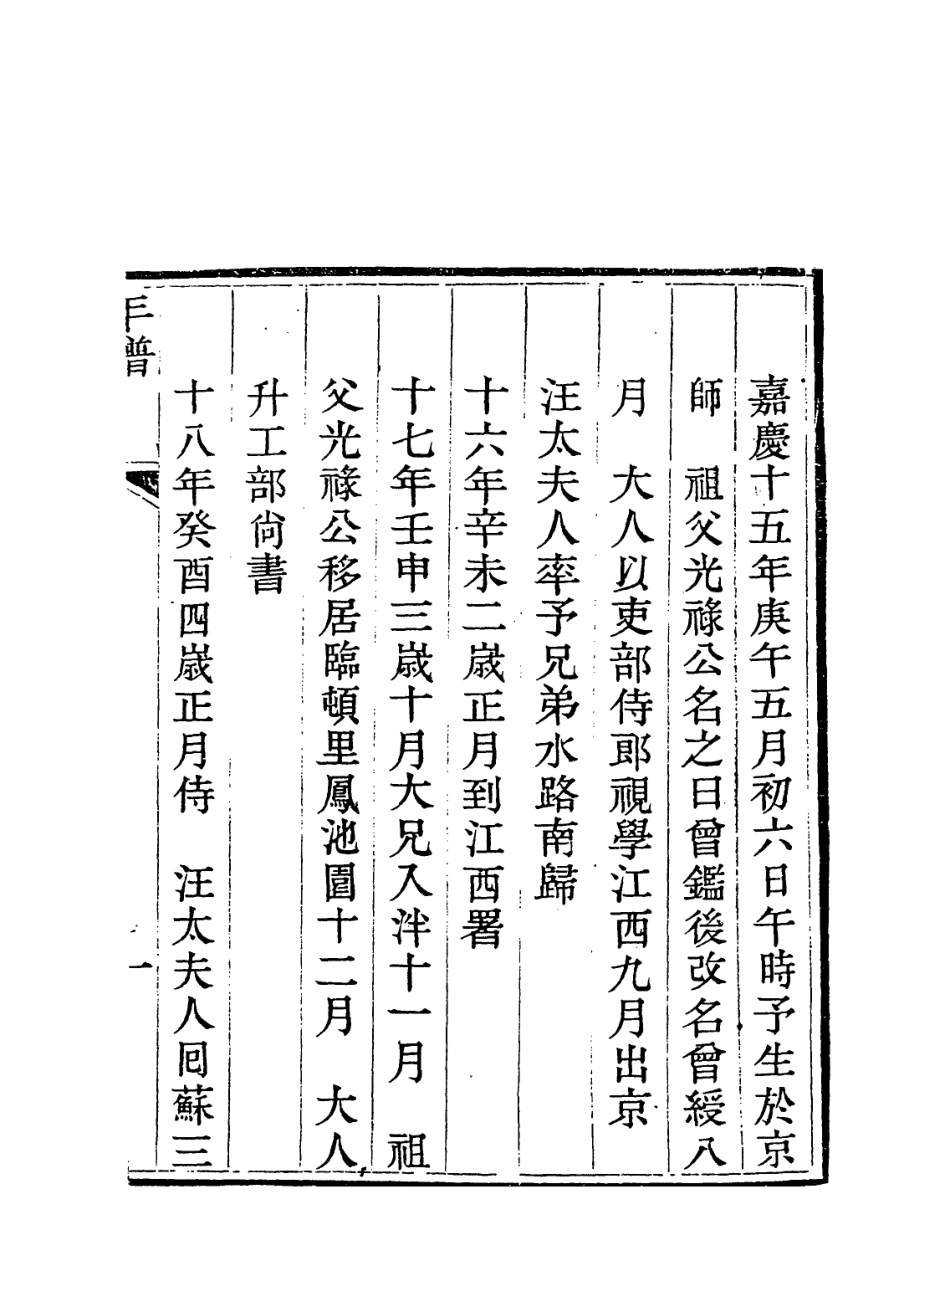 嘉慶十五年庚午五月初六日午時予生於京
師　祖父光祿公名之日曾鑑後改名曾綬八
月　大人以吏部侍郎視學江西九月出京
汪太夫人率予兄弟水路南歸
十六年辛未二歲正月到江西署
十七年壬申三歲十月大兄入泮十一月　祖
父光祿公移居臨頓里鳳池園十二月　大人
升工部尙書
十八年癸酉四歲正月侍　汪太夫人囘蘇三
年譜
一